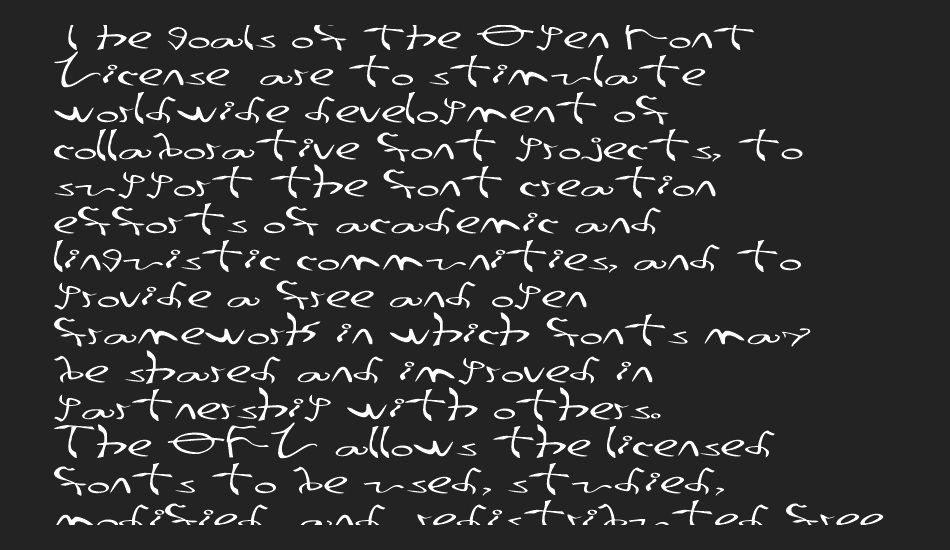 The goals of the Open Font
License are to stimulate
worldwide development of
collaborative font projects, to
support the font creation
efforts of academic and
linguistic communities, and to
provide a free and open
framework in which fonts may
be shared and improved in
partnership with others.
The OFL allows the licensed
fonts to be used, studied,
modified and redistributed free